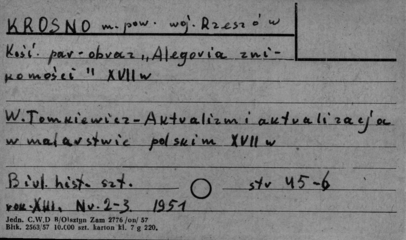 KROSNO m. pow. woj. Rzeszów
Kość. par-obraz "Alegoria zni-
komości" XVII w
W. Tomkiewicz - Aktualizm i aktualizacja
w malarstwie polskim XVII w
Biul. hist. szt. str 45-6
rok XIII. Nr. 2-3 1951
Jedn. C.W.D B/Olsztyn Zam 2776/on/57
Bltk. 2563/57 10.000 szt. karton kl. 7 g 220.